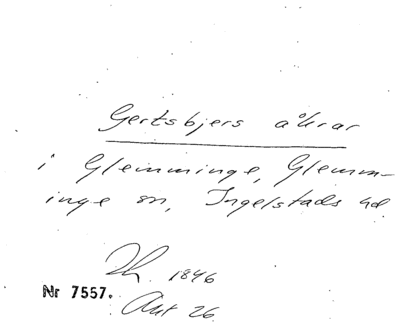 Gertsbjers åkrar
i Glemminge, Glemm-
inge sn, Ingelstads hd
Lh. 1846
Nr 7557.
Akt 26